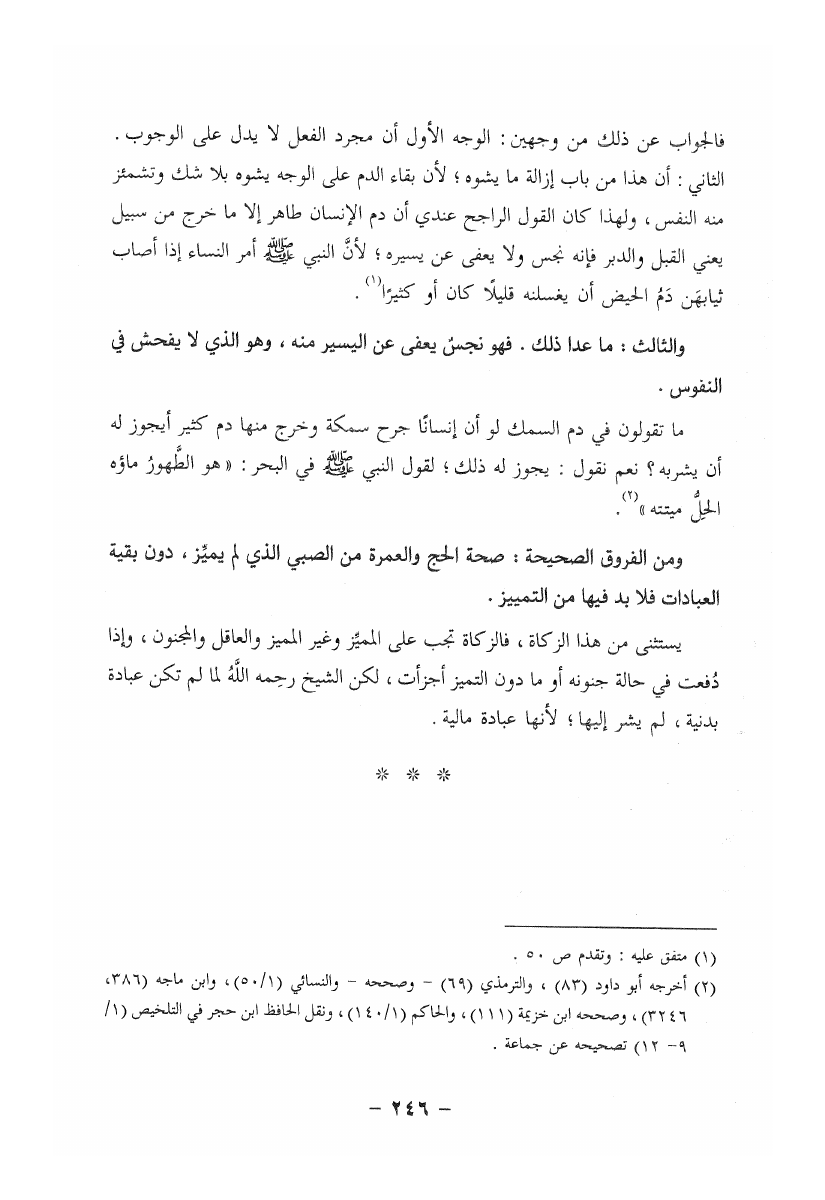 فالجواب عن ذلك من وجهين : الوجه الأول أن مجرد الفعل لا يدل على الوجوب .
الثاني : أن هذا من باب إزالة ما يشوه ؛ لأن بقاء الدم على الوجه يشوه بلا شك وتشمئز
منه النفس ، ولهذا كان القول الراجح عندي أن دم الإنسان طاهر إلا ما خرج من سبيل
يعني القبل والدبر فإنه نجس ولا يعفى عن يسيره ؛ لأنَّ النبي ﷺ أمر النساء إذا أصاب
ثيابهَن دَمُ الحيض أن يغسلنه قليلًا كان أو كثيرًا(١) .
والثالث : ما عدا ذلك . فهو نجسٌ يعفى عن اليسير منه ، وهو الذي لا يفحش في
النفوس .
ما تقولون في دم السمك لو أن إنسانًا جرح سمكة وخرج منها دم كثير أيجوز له
أن يشربه ؟ نعم نقول : يجوز له ذلك ؛ لقول النبي ﷺ في البحر : « هو الطَّهورُ ماؤه
الحِلُّ ميتته »(٢).
ومن الفروق الصحيحة : صحة الحج والعمرة من الصبي الذي لم يميِّز ، دون بقية
العبادات فلا بد فيها من التمييز .
يستثنى من هذا الزكاة ، فالزكاة تجب على المميِّز وغير المميز والعاقل والمجنون ، وإذا
دُفعت في حالة جنونه أو ما دون التميز أجزأت ، لكن الشيخ رحِمه اللَّهُ لما لم تكن عبادة
بدنية ، لم يشر إليها ؛ لأنها عبادة مالية .
* * *
(١) متفق عليه : وتقدم ص ٥٠ .
(٢) أخرجه أبو داود (٨٣) ، والترمذي (٦٩) - وصححه - والنسائي (٥٠/١)، وابن ماجه (٣٨٦،
٣٢٤٦) ، وصححه ابن خزيمة (١١١)، والحاكم (١٤٠/١)، ونقل الحافظ ابن حجر في التلخيص (١/
٩- ١٢) تصحيحه عن جماعة .
- ٢٤٦ -